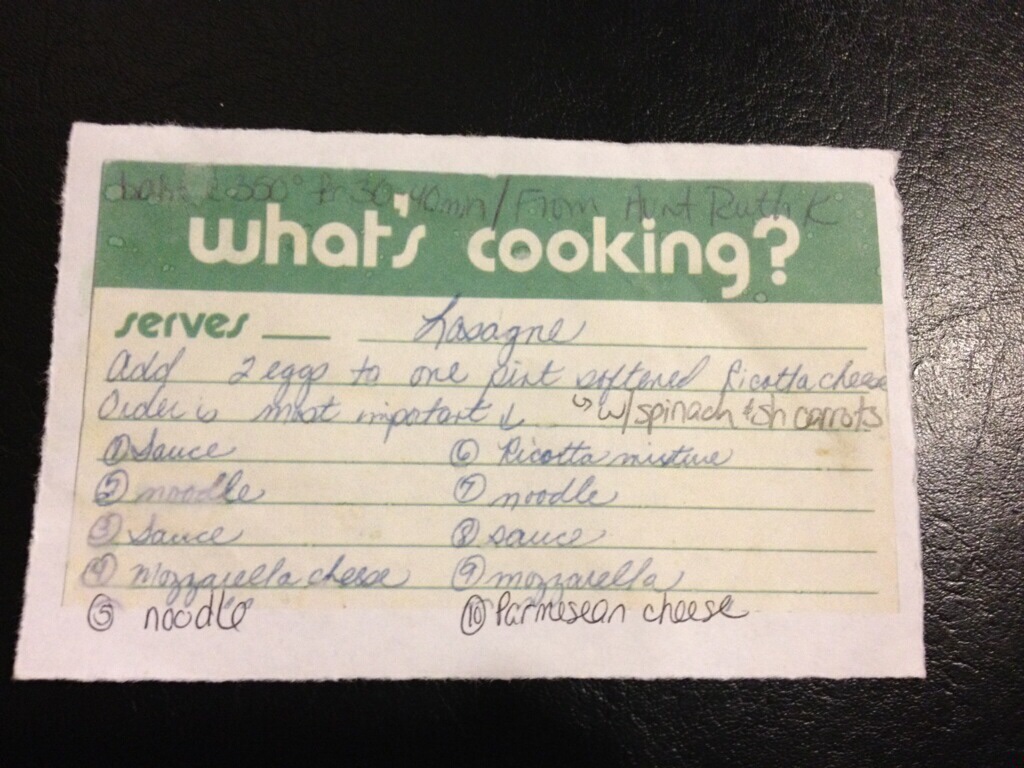 bake @ 350° for 30-40 min / From Aunt Ruth K
what's cooking?
serves Lasagne
Add 2 eggs to one pint softened Ricotta cheese
Order is most important ↓ ↳ w/ spinach & sh carrots
① Sauce ⑥ Ricotta mixture
② noodle ⑦ noodle
③ Sauce ⑧ sauce
④ Mozzarella cheese ⑨ mozzarella
⑤ noodle ⑩ Parmesean cheese